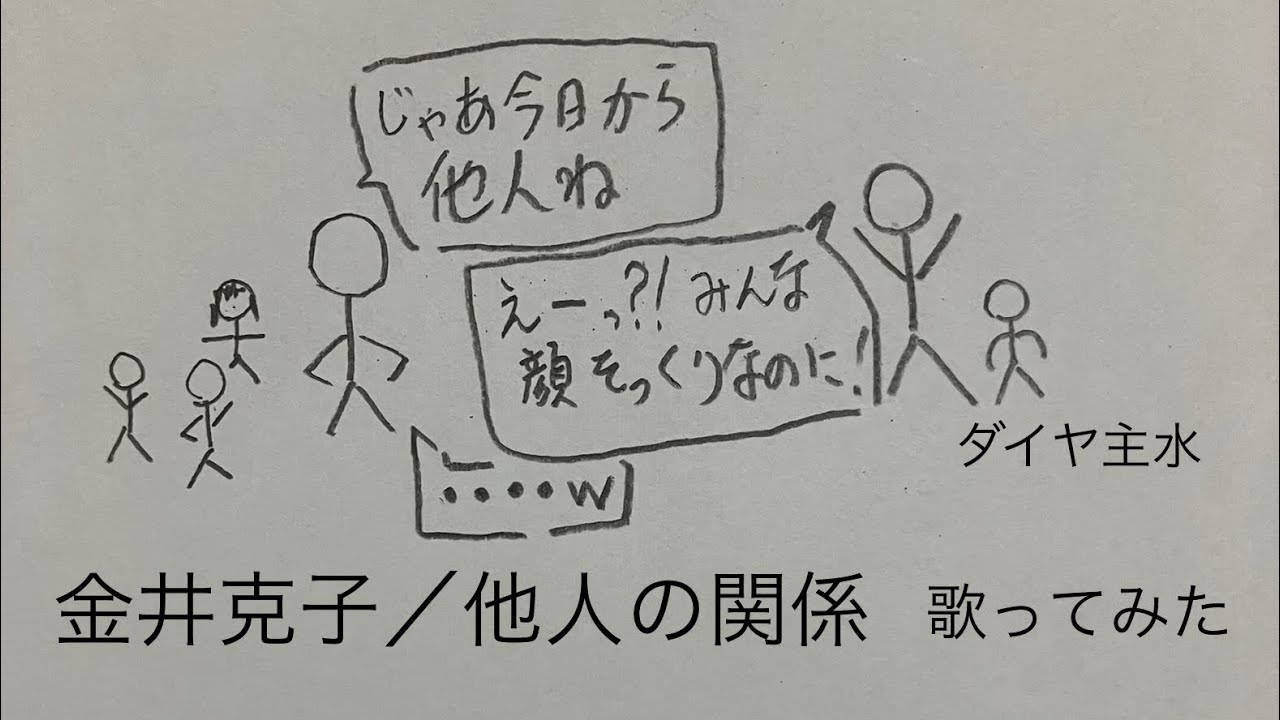 じゃあ今日から
他人ね
えーっ?! みんな
顔そっくりなのに!
・・・・w
ダイヤ主水
金井克子／他人の関係 歌ってみた